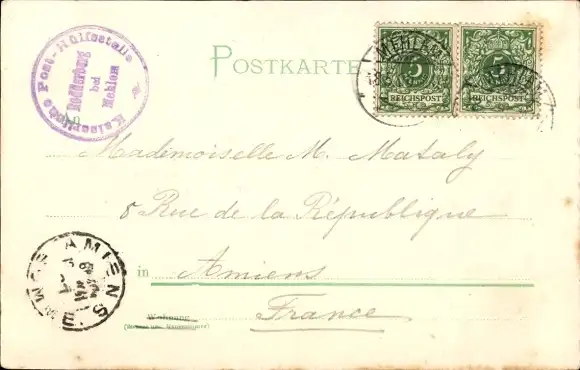 Kaiserliche Post-Hülfsstelle
Rodderberg
bei
Mehlem
POSTKARTE
MEHLEM
5 5
REICHSPOST REICHSPOST
An
Mademoiselle M. Mataly
8 Rue de la République
in Amiens
France
Wohnung
AMIENS
SOMME